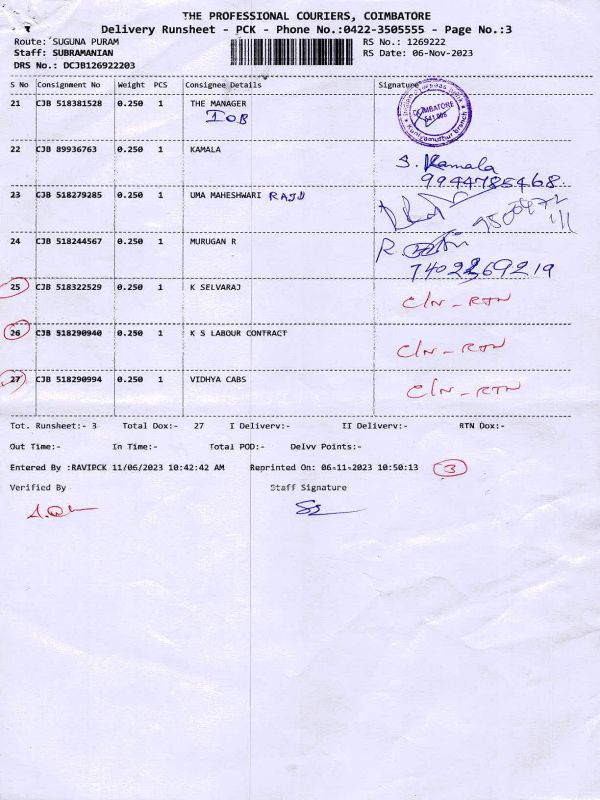 THE PROFESSIONAL COURIERS, COIMBATORE
Delivery Runsheet - PCK - Phone No.:0422-3505555 - Page No.:3
Route: SUGUNA PURAM RS No.: 1269222
Staff: SUBRAMANIAN RS Date: 06-Nov-2023
DRS No.: DCJB126922203
S No Consignment No Weight PCS Consignee Details Signature
21 CJB 518381528 0.250 1 THE MANAGER
IOB
COIMBATORE
22 CJB 89936763 0.250 1 KAMALA
S. Kamala
9944785468
23 CJB 518279285 0.250 1 UMA MAHESHWARI RAJU
24 CJB 518244567 0.250 1 MURUGAN R
R.
25 CJB 518322529 0.250 1 K SELVARAJ
C/N - RTN
26 CJB 518290940 0.250 1 K S LABOUR CONTRACT
C/N - RTN
27 CJB 518290994 0.250 1 VIDHYA CABS
C/N - RTN
Tot. Runsheet:- 3 Total Dox:- 27 I Delivery:- II Delivery:- RTN Dox:-
Out Time:- In Time:- Total POD:- Delvv Points:-
Entered By :RAVIPCK 11/06/2023 10:42:42 AM Reprinted On: 06-11-2023 10:50:13 3
Verified By Staff Signature